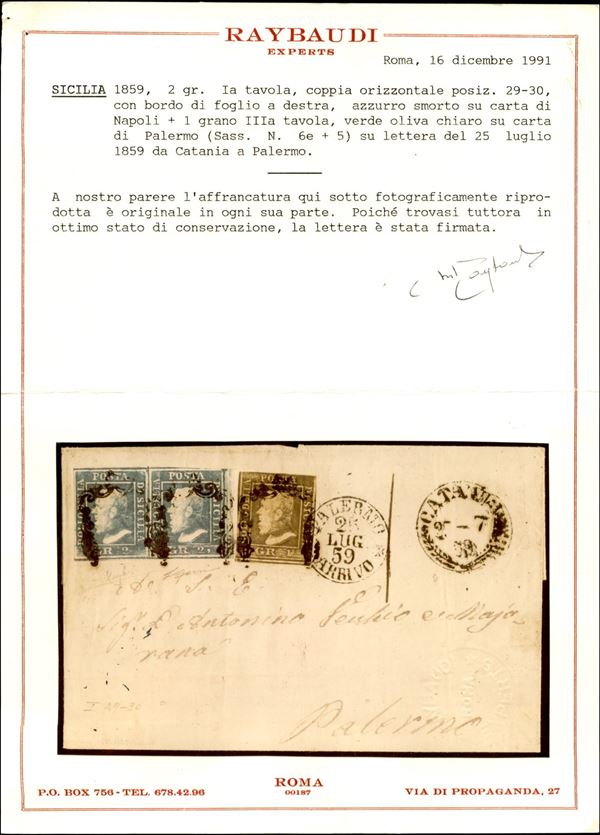 RAYBAUDI
EXPERTS
Roma, 16 dicembre 1991
SICILIA 1859, 2 gr. Ia tavola, coppia orizzontale posiz. 29-30,
con bordo di foglio a destra, azzurro smorto su carta di
Napoli + 1 grano IIIa tavola, verde oliva chiaro su carta
di Palermo (Sass. N. 6e + 5) su lettera del 25 luglio
1859 da Catania a Palermo.
A nostro parere l'affrancatura qui sotto fotograficamente ripro-
dotta è originale in ogni sua parte. Poiché trovasi tuttora in
ottimo stato di conservazione, la lettera è stata firmata.
POSTA POSTA
DI SICILIA
GR. 2 GR. 2
PALERMO
26
LUG
59
ARRIVO
S. E.
Sig. D. Antonino
rana
Palermo
I 29-30
ROMA
00187
P.O. BOX 756 - TEL. 678.42.96
VIA DI PROPAGANDA, 27